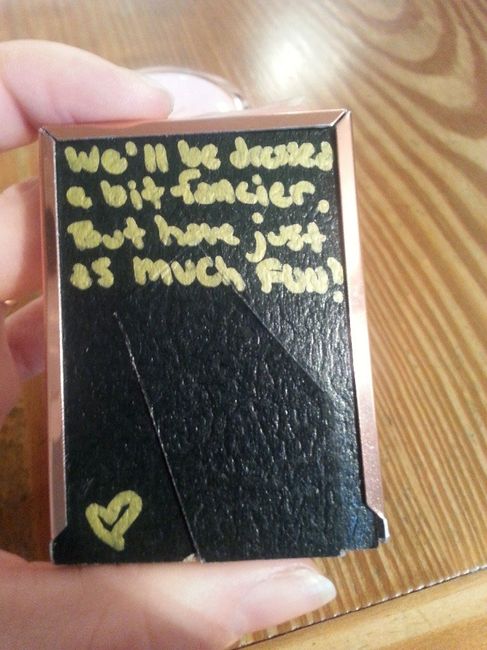 We'll be dressed
a bit fancier.
But have just
as much fun!